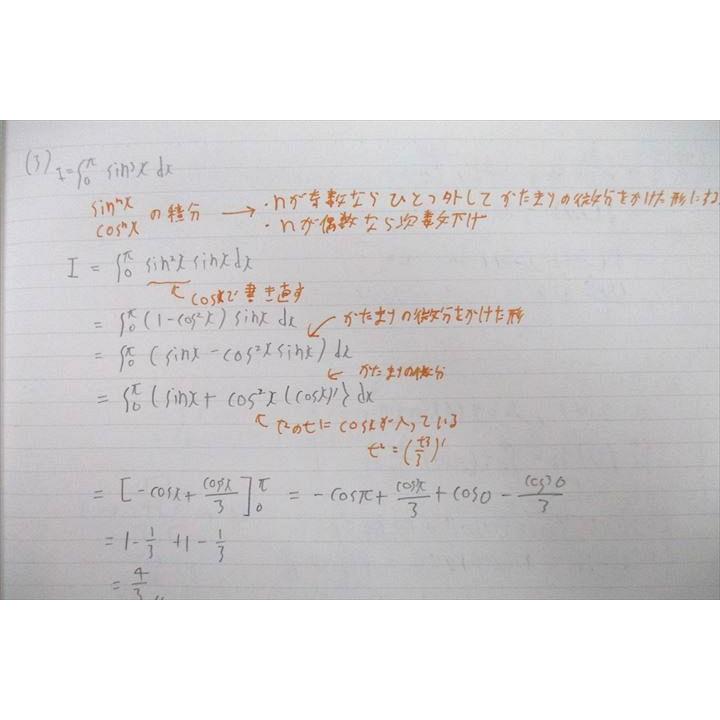 (3) I=∫₀^π sin³x dx
sinⁿx
cosⁿx の積分 → ・nが奇数なら ひとつ外して かたまりの微分をかけた形にする
・nが偶数なら次数下げ
I = ∫₀^π sin²x sinx dx
↖ cosxで書き直す
= ∫₀^π (1-cos²x) sinx dx かたまりの微分をかけた形
= ∫₀^π (sinx - cos²x sinx) dx
かたまりの微分
= ∫₀^π {sinx + cos²x (cosx)'} dx
↖ t²のtにcosxが入っている
t² = (t³/3)'
= [-cosx + cos³x/3]₀^π = -cosπ + cos³π/3 + cos0 - cos³0/3
= 1 - 1/3 + 1 - 1/3
= 4/3 〃